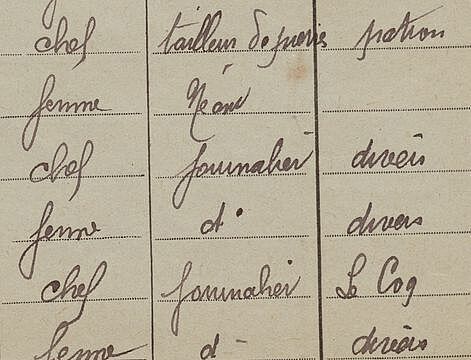 chef tailleur de pierres patron
femme Néant
chef journalier divers
femme d° divers
chef journalier Le Coq
femme d° divers